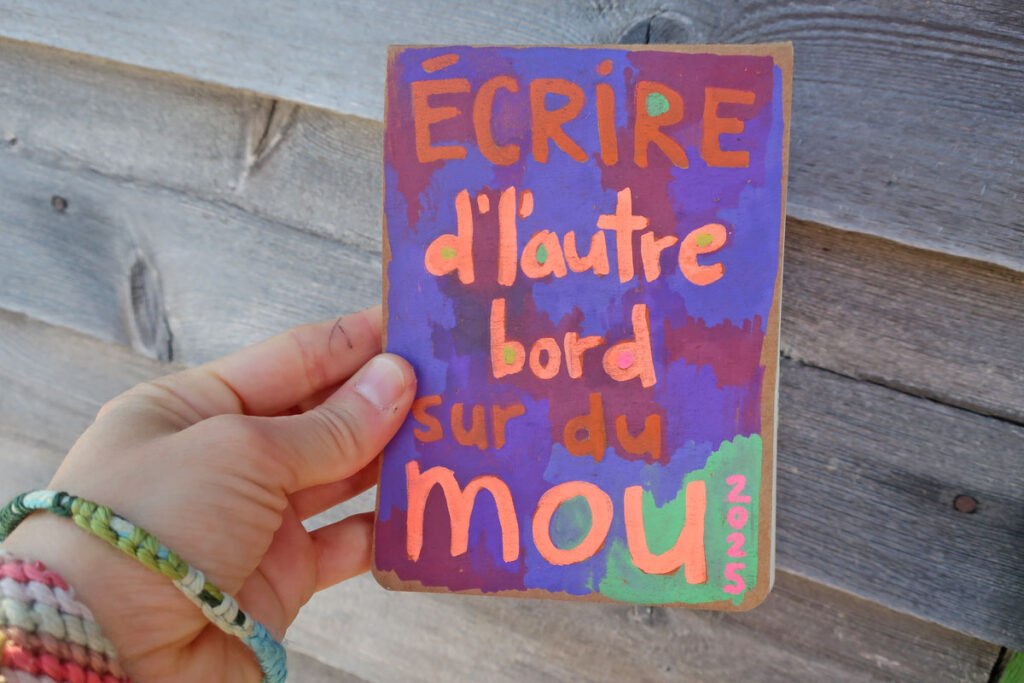 ÉCRIRE
d'l'autre
bord
sur du
mou
2025